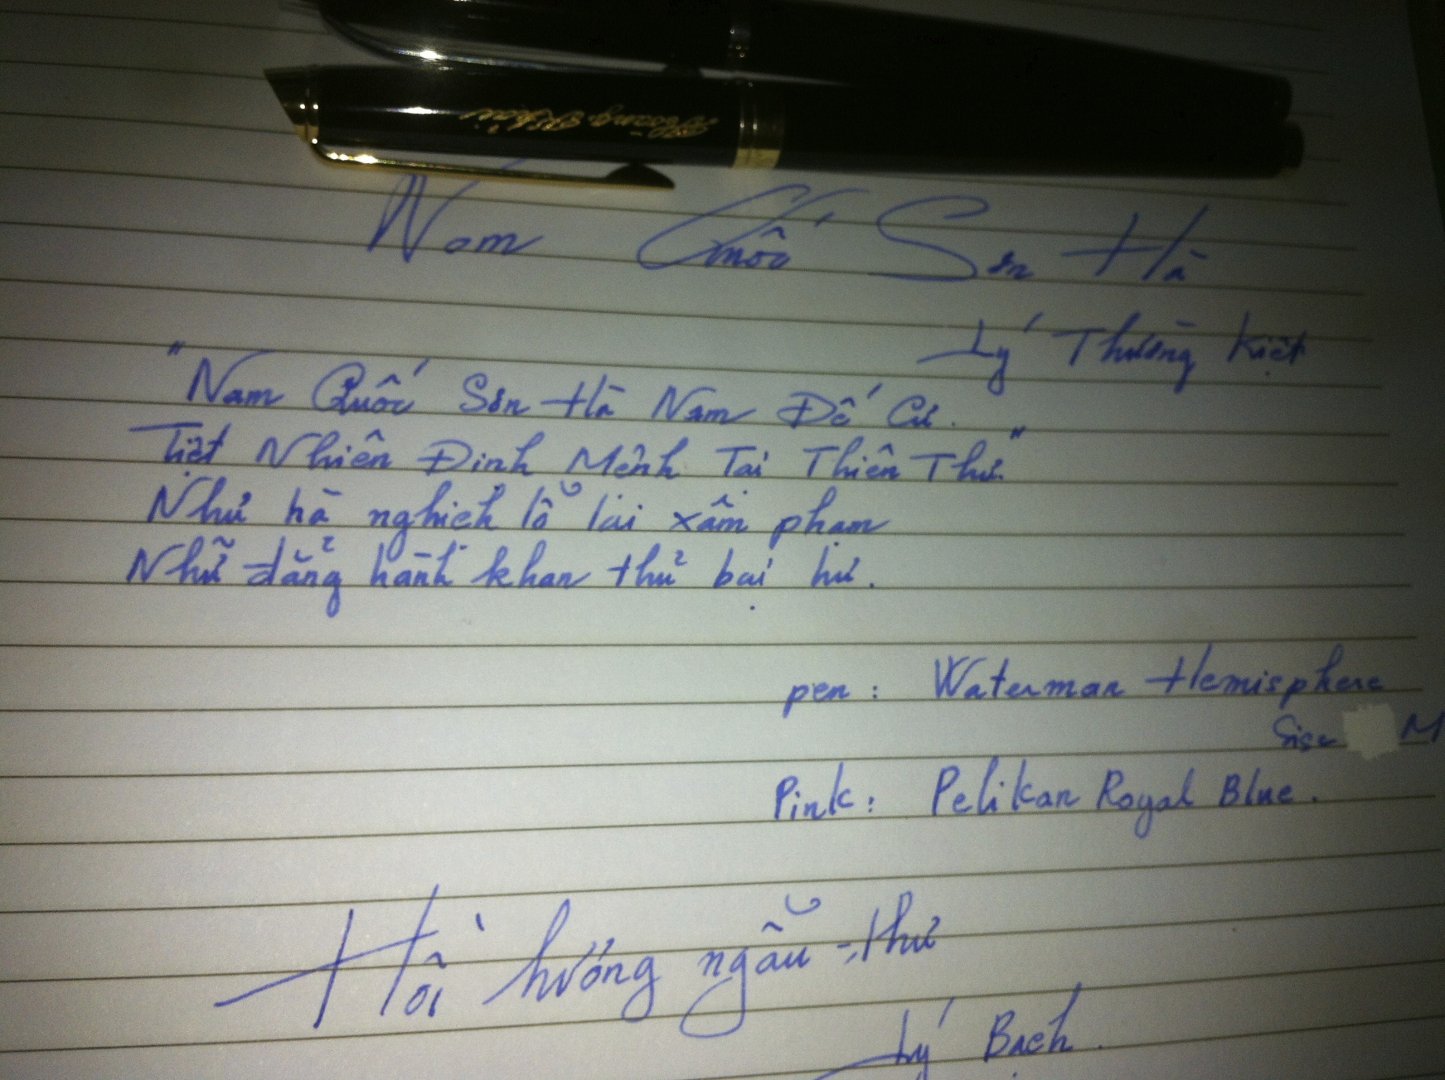 Hoàng Khải
Nam Quốc Sơn Hà
Lý Thường Kiệt
"Nam Quốc Sơn Hà Nam Đế Cư.
Tiệt Nhiên Định Mệnh Tại Thiên Thư."
Như hà nghịch lỗ lai xâm phạm
Nhữ đẳng hành khan thủ bại hư.
pen: Waterman Hemisphere
Sise M
Pink: Pelikan Royal Blue.
Hồi hương ngẫu thư
Lý Bạch.